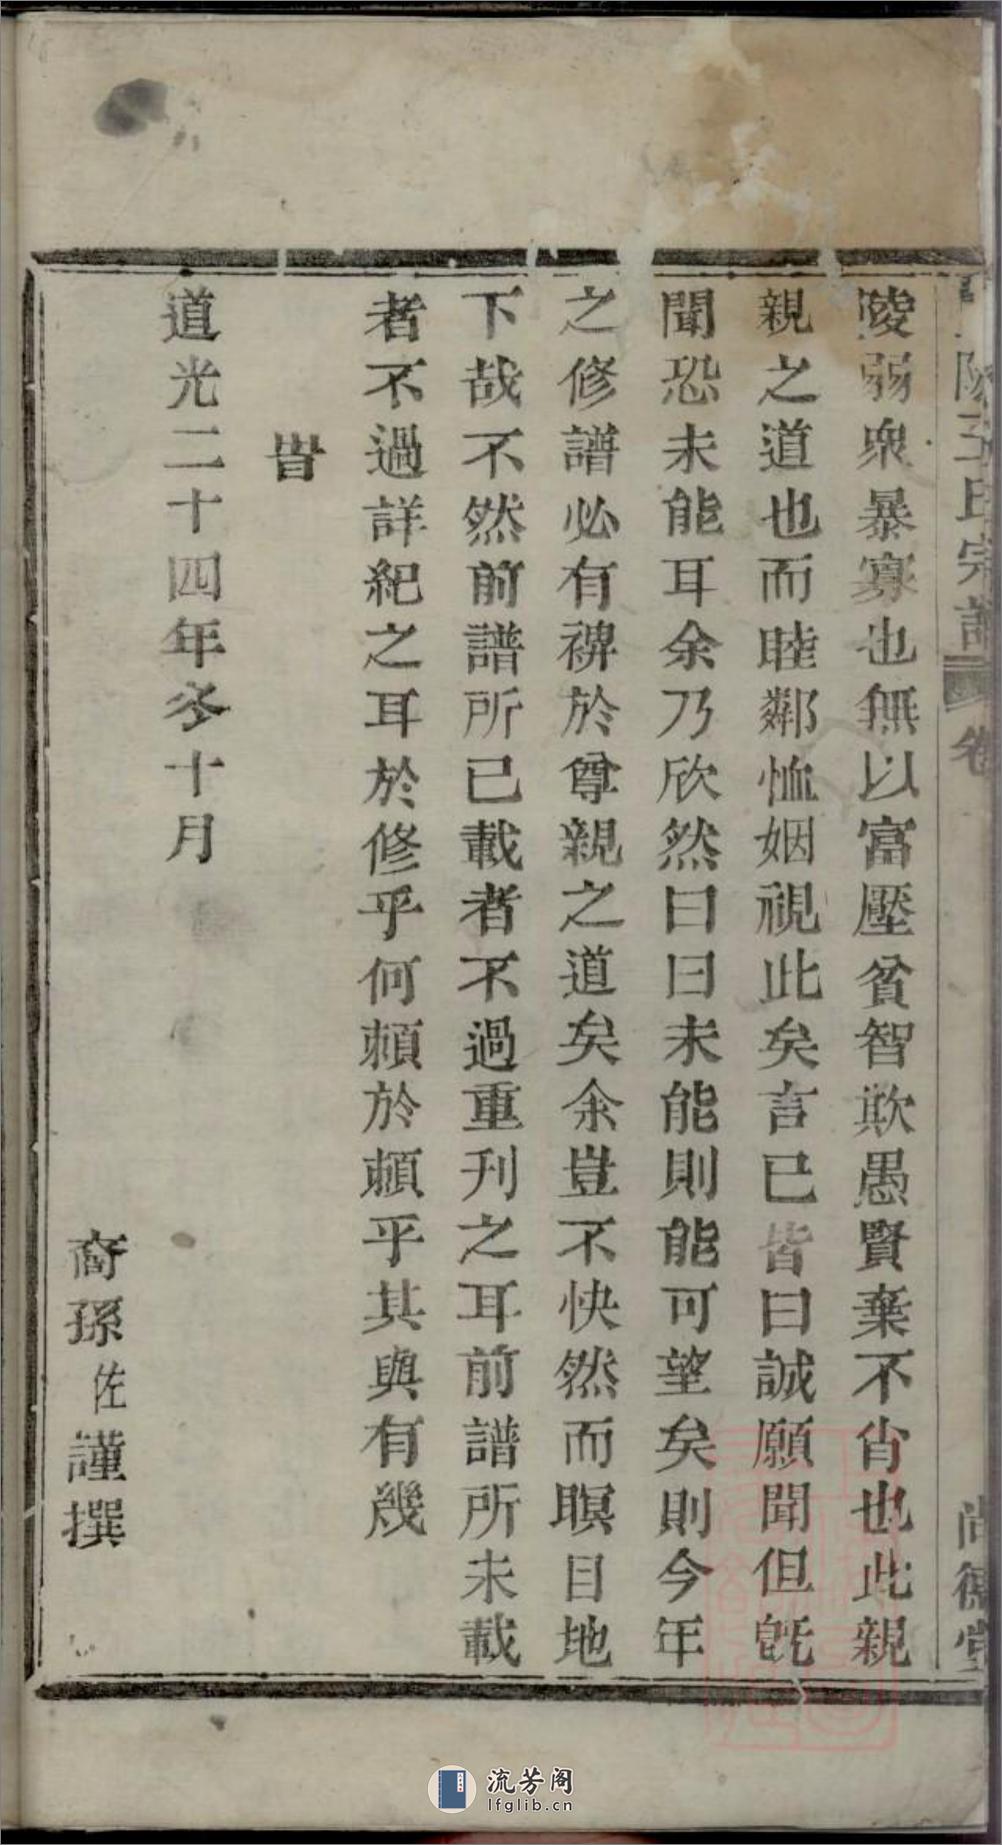 陵弱衆暴寡也無以富壓貧智欺愚賢棄不肖也此親
親之道也而睦鄰恤姻視此矣言已皆曰誠願聞但旣
聞恐未能耳余乃欣然曰曰未能則能可望矣則今年
之修譜必有裨於尊親之道矣余豈不快然而瞑目地
下哉不然前譜所已載者不過重刊之耳前譜所未載
者不過詳紀之耳於修乎何賴於賴乎其與有幾
旹
道光二十四年冬十月
裔孫佐謹撰
王氏宗譜
卷
尚德堂
流芳阁
lfglib.cn